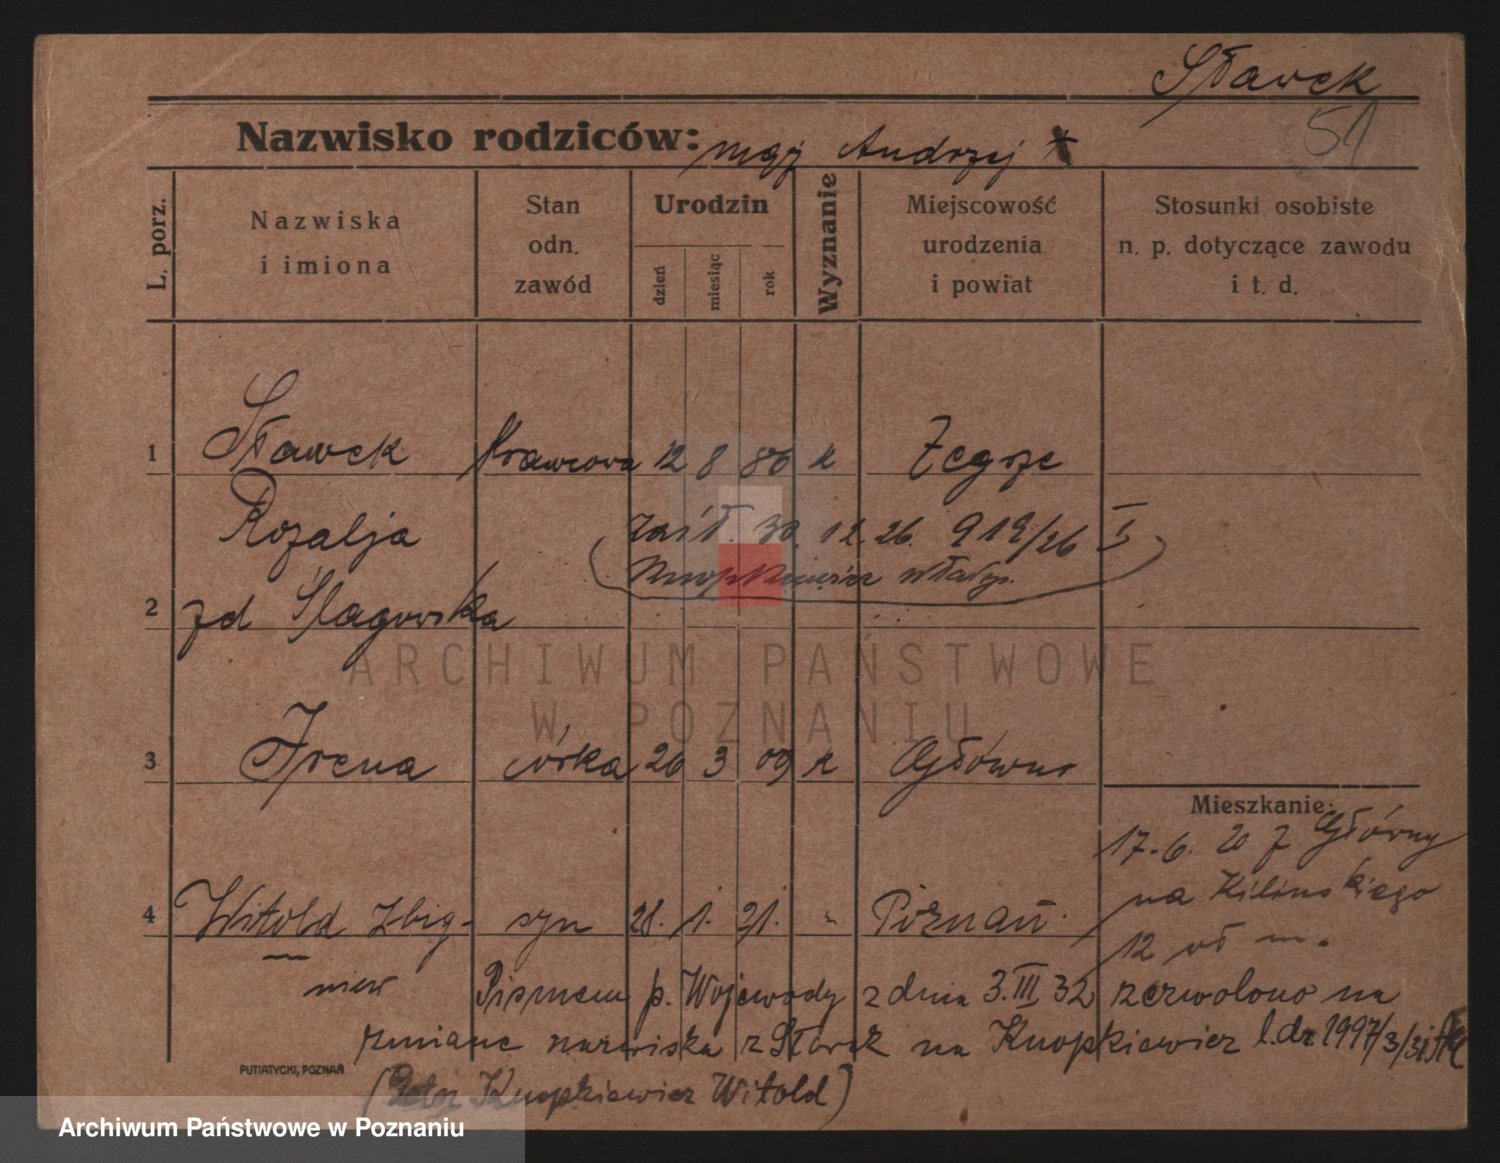 Sławek
51
Nazwisko rodziców: mąż Andrzej
L. porz.
Nazwiska
i imiona
Stan
odn.
zawód
Urodzin
dzień
miesiąc
rok
Wyznanie
Miejscowość
urodzenia
i powiat
Stosunki osobiste
n. p. dotyczące zawodu
i t. d.
1 Sławek Krawcowa 12 8 86 k Zegrze
Rozalja zaśl. 30. 12. 26. 919/26 I
Knopkiewicz
2 zd
3 Irena córka 26 3 09 k Główno
Mieszkanie:
17. 6. 20 z Główny
na Kilińskiego
12
4 Witold Zbig- syn 28. 1. 21. " Poznań.
niew Pismem p. Wojewody z dnia 3. III 32 zezwolono na
zmianę nazwiska z Sławek na Knopkiewicz l. dz. 1997/3/31
PUTIATYCKI, POZNAŃ
(Knopkiewicz Witold)
ARCHIWUM PAŃSTWOWE
W POZNANIU
Archiwum Państwowe w Poznaniu